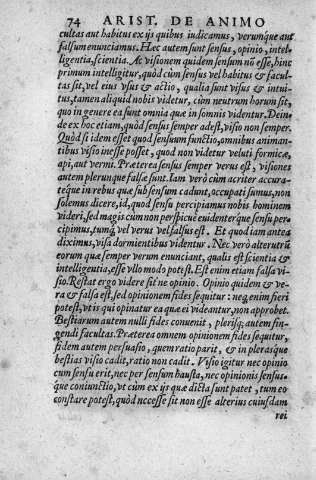 74 ARIST. DE ANIMO
cultas aut habitus ex ijs quibus iudicamus, verumque aut
falsum enunciamus. Hæc autem sunt sensus, opinio, intel-
ligentia, scientia. Ac visionem quidem sensum nō esse, hinc
primum intelligitur, quòd cùm sensus vel habitus & facul-
tas sit, vel eius vsus & actio, qualia sunt visus & intui-
tus, tamen aliquid nobis videtur, cùm neutrum horum sit,
quo in genere ea sunt omnia quæ in somnis videntur. Dein-
de ex hoc etiam, quòd sensus semper adest, visio non semper.
Quòd si idem esset quod sensuum functio, omnibus animan-
tibus visio inesse posset, quod non videtur veluti formicæ,
api, aut vermi. Præterea sensus semper verus est, visiones
autem plerunque falsæ sunt. Iam verò cùm acriter accura-
teque in rebus quæ sub sensum cadunt, occupati sumus, non
solemus dicere, id, quod sensu percipiamus nobis hominem
videri, sed magis cum non perspicuè euidenterque sensu per-
cipimus, tumq́ vel verus vel falsus est. Et quod iam antea
diximus, visa dormientibus videntur. Nec verò alterutrū
eorum quæ semper verum enunciant, qualis est scientia &
intelligentia, esse vllo modo potest. Est enim etiam falsa vi-
sio. Restat ergo videre sit ne opinio. Opinio quidem & ve-
ra & falsa est, sed opinionem fides sequitur: neq; enim fieri
potest, vt is qui opinatur ea quæ ei videantur, non approbet.
Bestiarum autem nulli fides conuenit, plerisq; autem fin-
gendi facultas. Præterea omnem opinionem fides sequitur,
fidem autem persuasio, quem ratio parit, & in plerasque
bestias visio cadit, ratio non cadit. Visio igitur nec opinio
cum sensu erit, nec per sensum hausta, nec opinionis sensus-
que coniunctio, vt cùm ex ijs quæ dicta sunt patet, tum eo
constare potest, quòd nccesse sit non esse alterius cuiusdam
rei